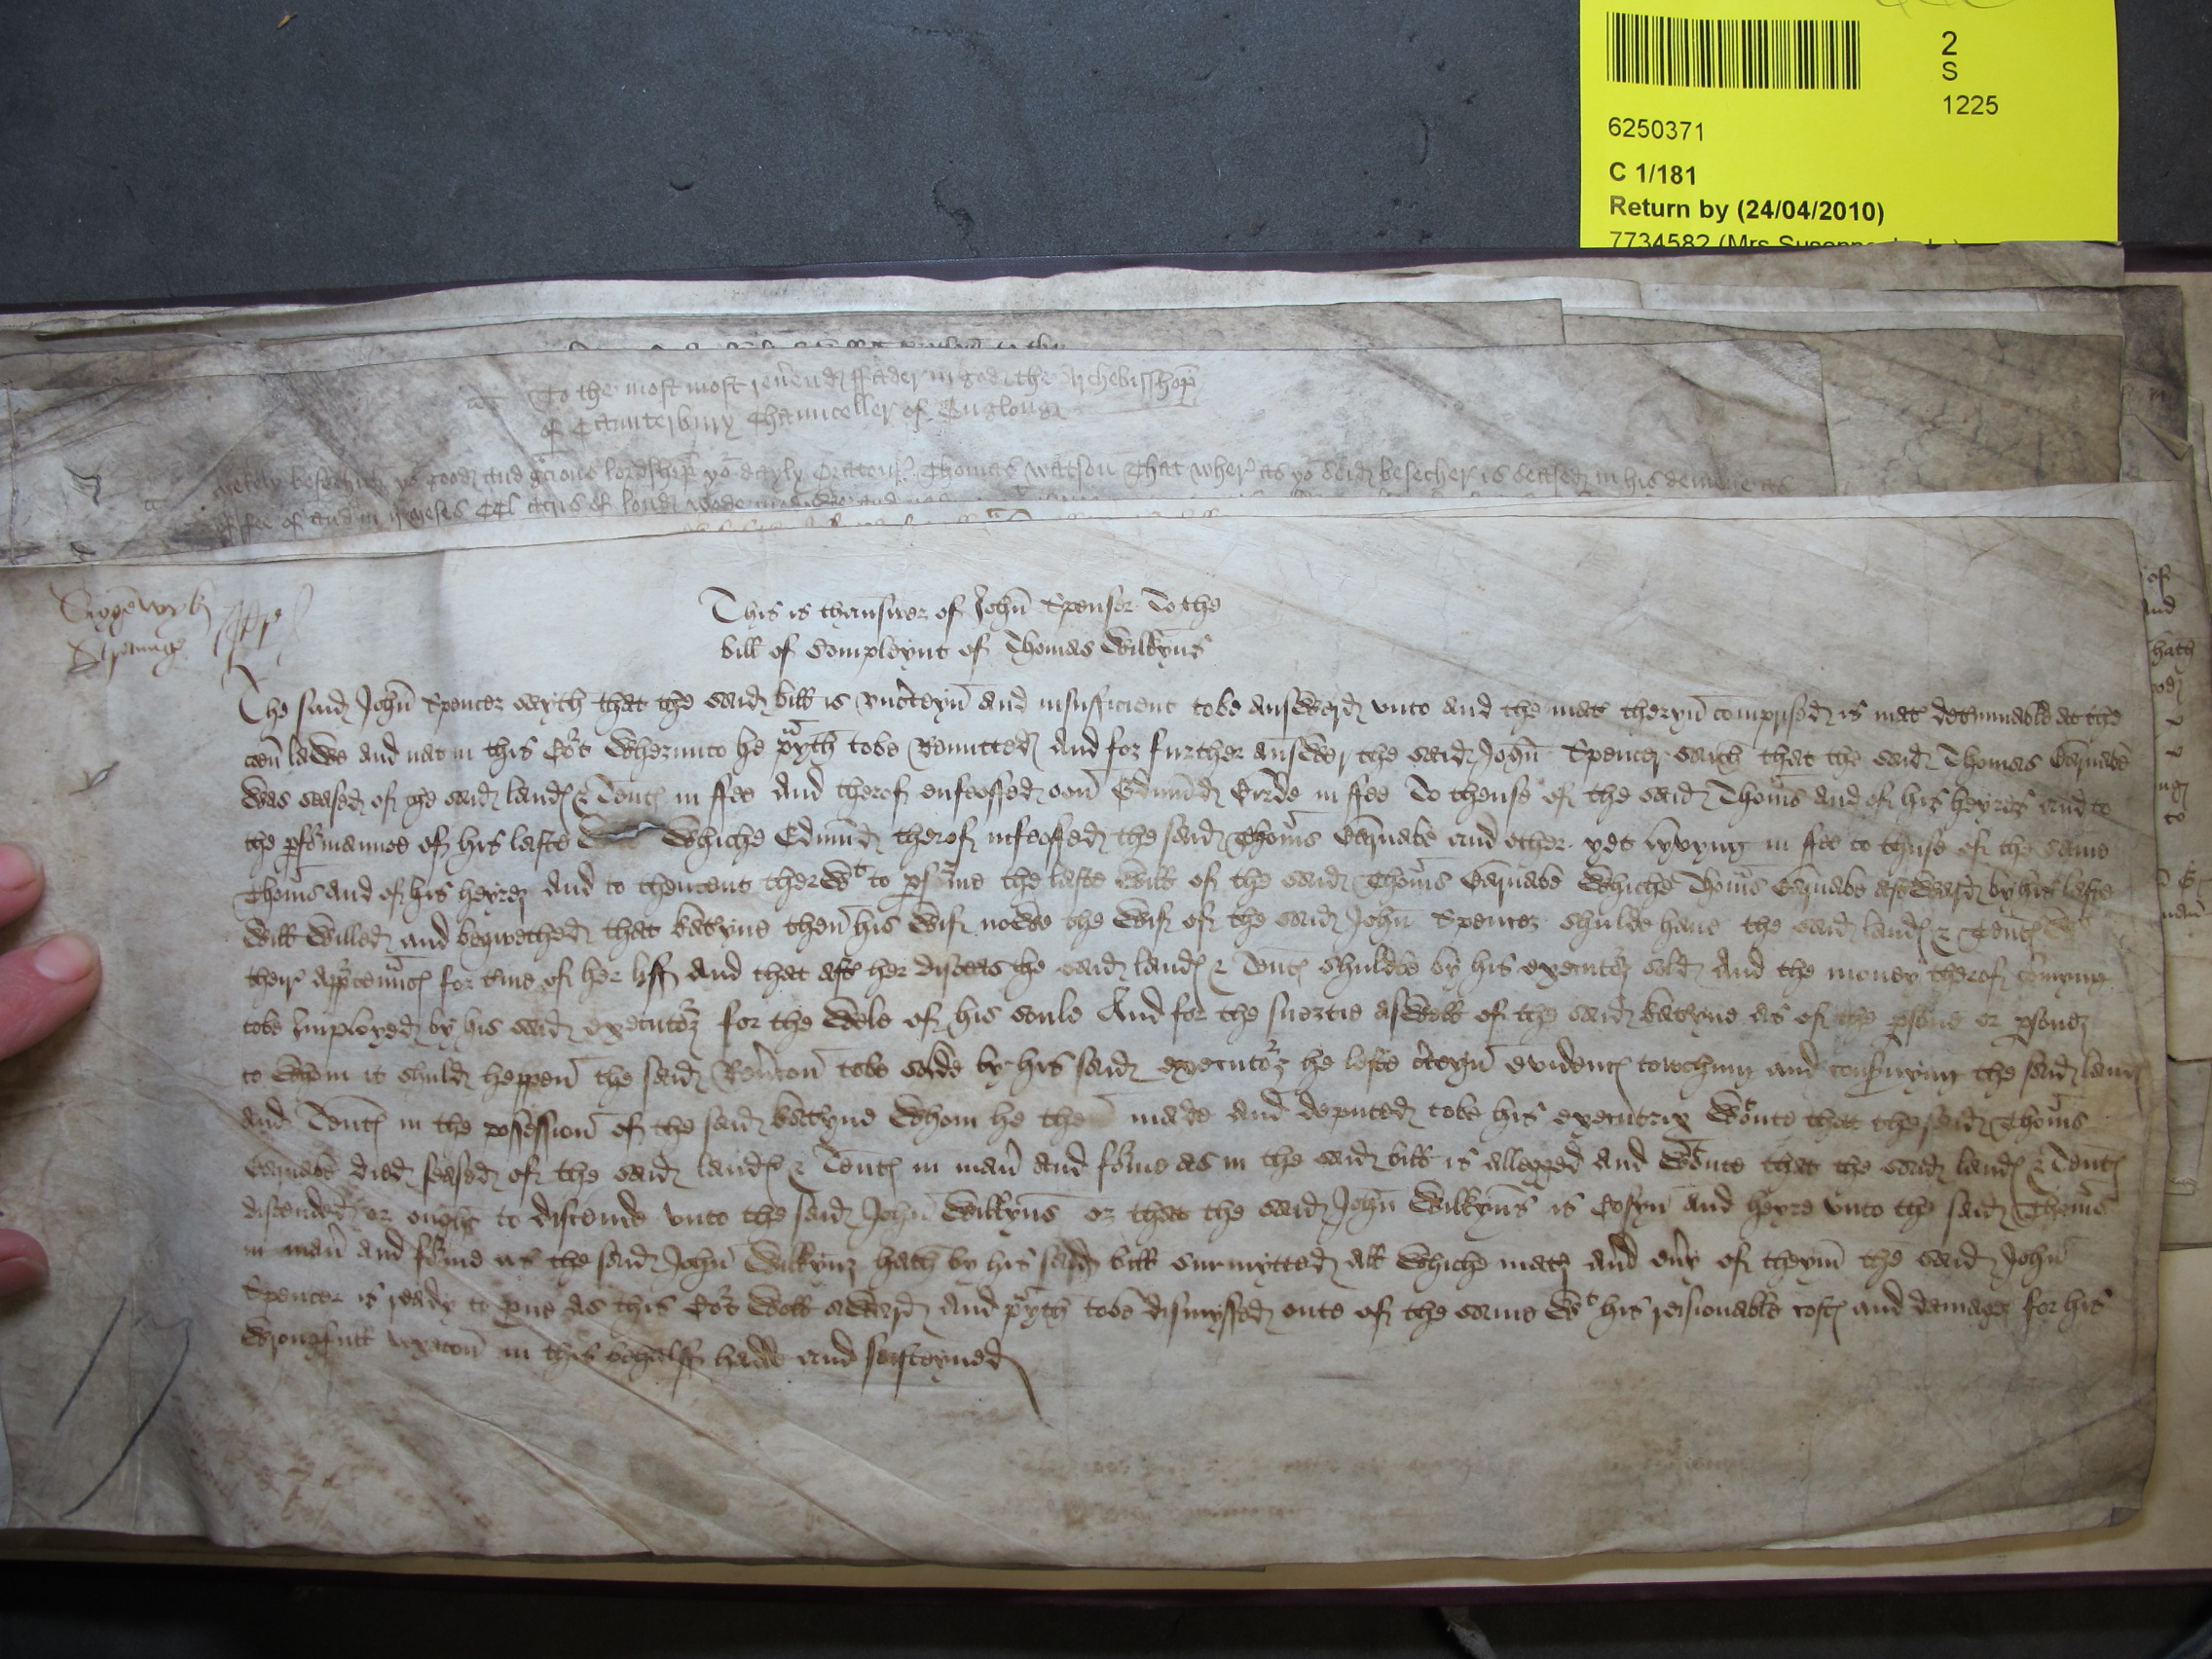 2
S
1225
6250371
C 1/181
Return by (24/04/2010)
7734582 (Mrs
To the most most reuend ffader in god the Archebisshop
of Caunterbury Chaunceller of Englond
mekely besechith yo good and gracious lordship yo dayly Oratour Thomas Watson That wher as yo seid besecher is seased in his demene as
of fee of and in
This is thanswer of John Spenser To the
bill of Compleynt of Thomas Wilkyns
The said John Spencer sayth that the said bill is vncteyn and insufficient tobe answerd vnto and the mat theryn comprised is mat determinable at the
coen lawe and nat in this Cort Wherunto he prayth tobe Remitted And for further answer the said John Spencer saith that the said Thomas Barnabe
was seased of the said land & Tent in ffee And therof enfeoffed oon Edmund Birde in ffee To thuse of the said Thomas and of his heyres and to
the pformannce of his laste Whiche Edmund therof infeoffed the said Thomas Barnabe and other yet lyvyng in ffee to thuse of the same
Thomas and of his heyrez And to thentent therwt to pforme the laste Will of the said Thomas Barnabe Whiche Thomas Barnabe aftward by his laste
Will Willed and beqwethed that Katryne then his Wif nowe the Wif of the said John Spencer shulde haue the said land & Tent
their apptennc for tme of her liff And that aft her disceas the said land & Tent shuldbe by his executorz sold And the money therof comyng
tobe Imployed by his said executorz for the Wele of his soule And for the suertie aswell of the said Katryne as of the psone or psonez
to Whom it shuld heppen the said Reucon tobe solde by his said executorz he lefte cteyn evidenc towching and consernyng the said land
And Tent in the possession of the said Katryne Whom he made and deputed tobe his executrix Wtoute that the said Thomas
Barnabe died seased of the said land & Tent in man and forme as in the said bill is allegged And Wtoute that the said land & Tent
discended or ought to discende vnto the said John Wilkyns or that the said John Wilkyns is Cosyn and heyre vnto the said Thomas
in man and forme as the said John Wilkynz hath by his said bill surmytted All Whiche matz and euy of theym the said John
Spencer is ready to pue as this Cort Woll award And prayth tobe dismyssed oute of the same Wt his resionable cost and damagez for his
Wrongfull vexacon in this behalff hadde and susteyned